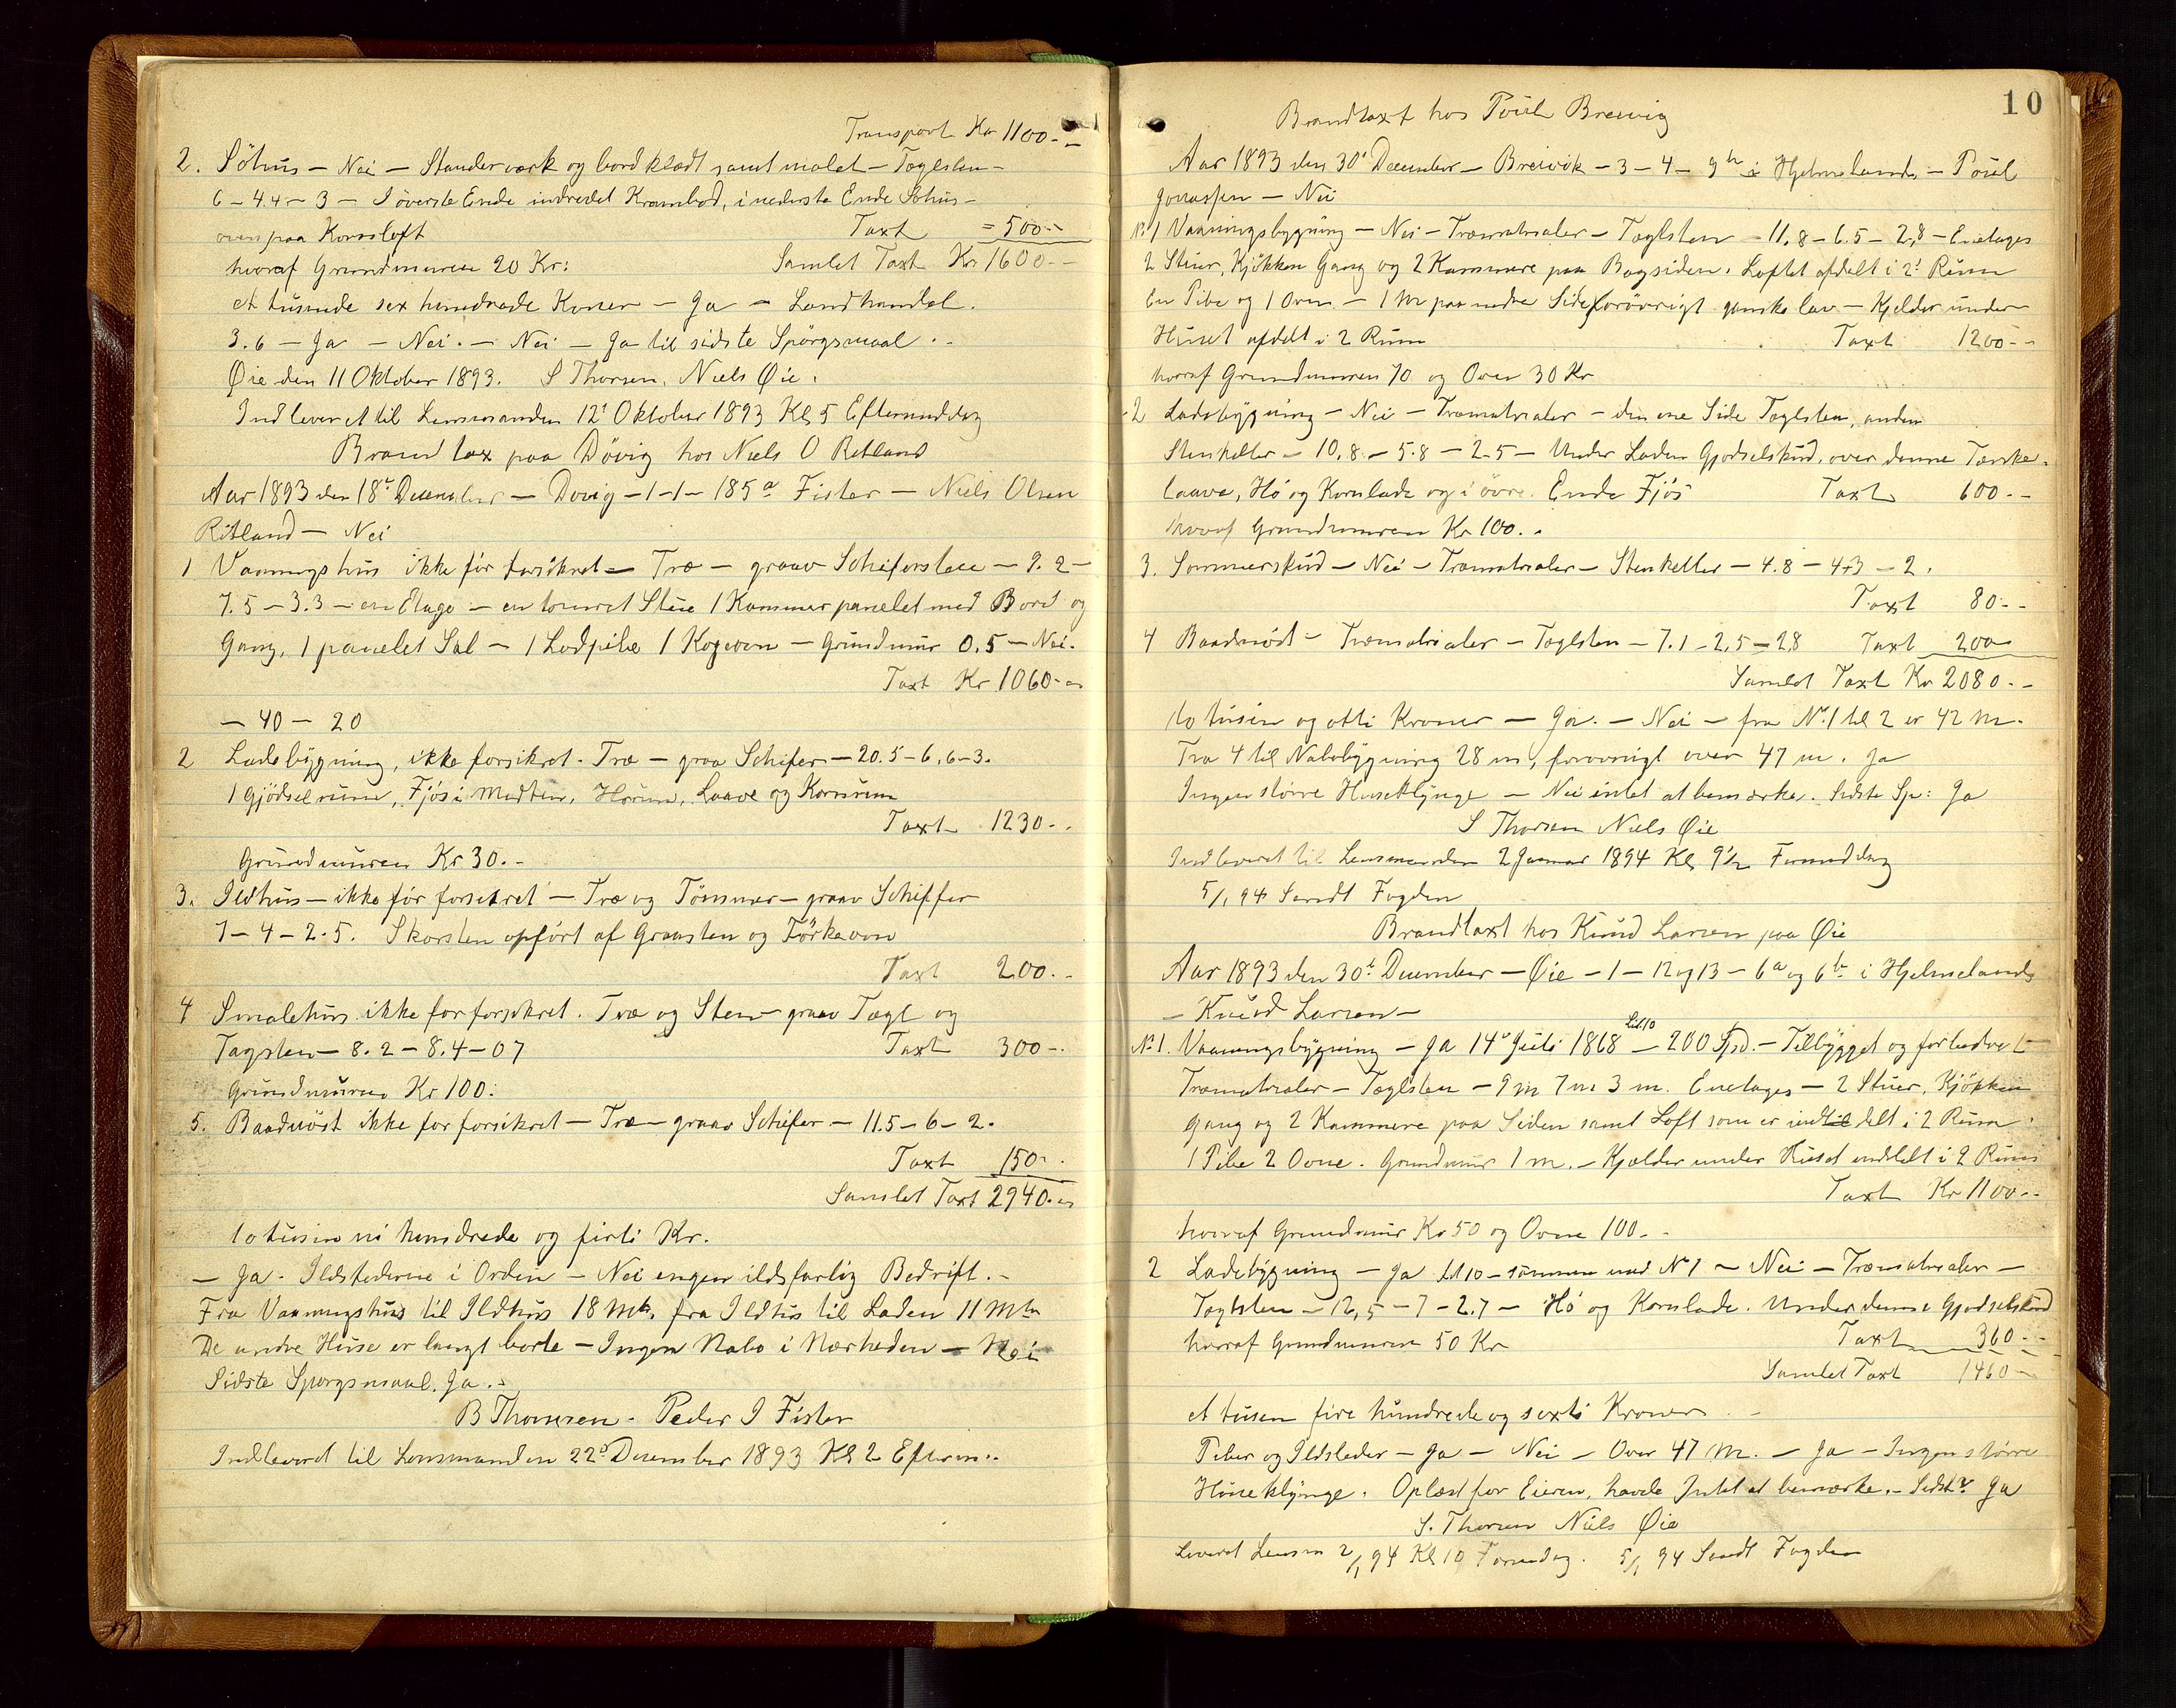 Transport Kr 1100.-
2. Söhus – Nei – Standerværk og bordklædt samt malet – Taglsten –
6 – 4.4 – 3 – I øverste Ende indredet Krambod, i nederste Ende Söhus –
oven paa Kornloft Taxt = 500.-
hvoraf Grundmuren 20 Kr: Samlet Taxt Kr 1600.-
et tusinde sex hundrede Kroner – Ja – Landhandel.
3.6 – Ja – Nei. – Nei – Ja til sidste Spörgsmaal.
Øie den 11 Oktober 1893. S Thorsen. Niels Øie.
Indleveret til Lensmanden 12' Oktober 1893 Kl 5 Eftermiddag
Brand tax paa Dövig hos Niels O Ritland
Aar 1893 den 18t December – Dovig – 1 – 1 – 185a Fister – Niels Olsen
Ritland – Nei
1 Vaaningshus ikke för forsikret – Træ – graav Schifersten – 9.2 –
7.5 – 3.3 – en Etage – en tömret Stue 1 Kammer panelet med Bord og
Gang, 1 panelet Sal – 1 Lodpibe 1 Kogeovn – Grundmur 0.5 – Nei.
Taxt Kr 1060.-
– 40 – 20
2 Ladebygning, ikke forsikret. Træ – graa Schifer – 20.5 – 6,6 – 3.
1 Gjödselrum, Fjös i Midten, Hörum, Laave og Kornrum
Taxt 1230.-
Grundmuren Kr 30.-
3. Ildhus – ikke för forsikret – Træ og Tömmer – graav Schiffer
7 – 4 – 2.5. Skorsten opfört af Graasten og Törkeovn
Taxt 200.-
4 Smalehus ikke for forsikret. Træ og Sten – graav Tagl og
Tagsten – 8.2 – 8.4 – 07 Taxt 300 –.
Grundmuren Kr 100:
5. Baadnöst ikke for forsikret – Træ – graav Schifer – 11.5 – 6 – 2.
Taxt 150.-
Samlet Taxt 2940.-
to tusin ni hundrede og firti Kr.
– Ja. Ildstederne i Orden – Nei ingen ildsfarlig Bedrift. –
Fra Vaaningshus til Ildhus 18 Mtr, fra Ildhus til Laden 11 Mtr
De andre Huse er langt borte – Ingen Nabo i Nærheden – Nei
Sidste Spørgsmaal. Ja.
B Thomsen. Peder I Fister
Indleveret til Lensmanden 22d December 1893 Kl 2 Efterm:.
10
Brandtaxt hos Poul Brewig
Aar 1893 den 30' December – Breivik – 3 – 4 – 9 i Hjelmelands – Poul
Jonassen – Nei
No 1 Vaaningsbygning – Nei – Træmatrialer – Taglsten – 11,8 – 6.5 – 2,8 – Enetages
2 Stuer, Kjökken Gang og 2 Kammere paa Bagsiden. Loftet afdelt i 2 Rum
En Pibe og 1 Ovn – 1 M paa nedre Side forövrigt ganske lav – Kjelder under
Huset afdelt i 2 Rum Taxt 1200.-
hvoraf Grundmuren 70 og Oven 30 Kr
2 Ladebygning – Nei – Træmatrialer – den ene Side Taglsten, anden
Stenheller – 10,8 – 5.8 – 2.5 – Under Laden Gjödselskud, over denne Tærske,
laave, Hö og Kornlade og i övre Ende Fjös Taxt 600.-
hvoraf Grundmuren Kr 100.-
3. Sommerskud – Nei – Træmatrialer – Stenheller – 4.8 – 4.3 – 2.
Taxt 80.-
4 Baadnöst – Træmatrialer – Taglsten – 7.1 – 2,5 – 2,8 Taxt 200
Samlet Taxt Kr 2080.-
to tusin og otti Kroner – Ja. – Nei – fra No 1 til 2 er 42 M.
Fra 4 til Nabobygning 28 m, forovrigt over 47 m. Ja
Ingen större Huseklynge – Nei intet at bemærke. Sidste Sp: Ja
S Thorsen Niels Øie
Indleveret til Lensmanden 2 Januar 1894 Kl 9½ Formiddag
5/1 94 Sendt Fogden
Brandtaxt hos Knud Larsen paa Øie
Aar 1893 den 30t December – Øie – 1 – 12 og 13 – 6a og 6b i Hjelmelands
– Knud Larsen –
No 1. Vaaningsbygning – Ja 14 Juli 1868 Lit 10 – 200 Spd. – Tilbygget og forbedret
Træmatrialer – Taglsten – 9 m 7 m 3 m. Enetages – 2 Stuer, Kjökken
gang og 2 Kammere paa Siden samt Loft som er inddelt i 2 Rum.
1 Pibe 2 Ovne. Grundmur 1 m. – Kjælder under Huset inddelt i 2 Rum
Taxt Kr 1100.-
hvoraf Grundmur Kr 50 og Ovne 100.-
2 Ladebygning – Ja Lit 10 – sammen med No 1 – Nei – Træmatrialer –
Taglsten – 12,5 – 7 – 2.7 – Hö og Kornlade. Under denne Gjödselskud
hvoraf Grundmuren 50 Kr Taxt 360.-
Samlet Taxt 1460 –
et tusen fire hundrede og sexti Kroner
Piber og Ildsteder – Ja – Nei – Over 47 M. – Ja – Ingen större
Huseklynge. Oplæst for Eieren, havde Intet at bemærke. – Sidste Ja
S. Thorsen Niels Øie
Leveret Lensm 2/1 94 Kl 10 Formdag. 5/1 94 Sendt Fogden